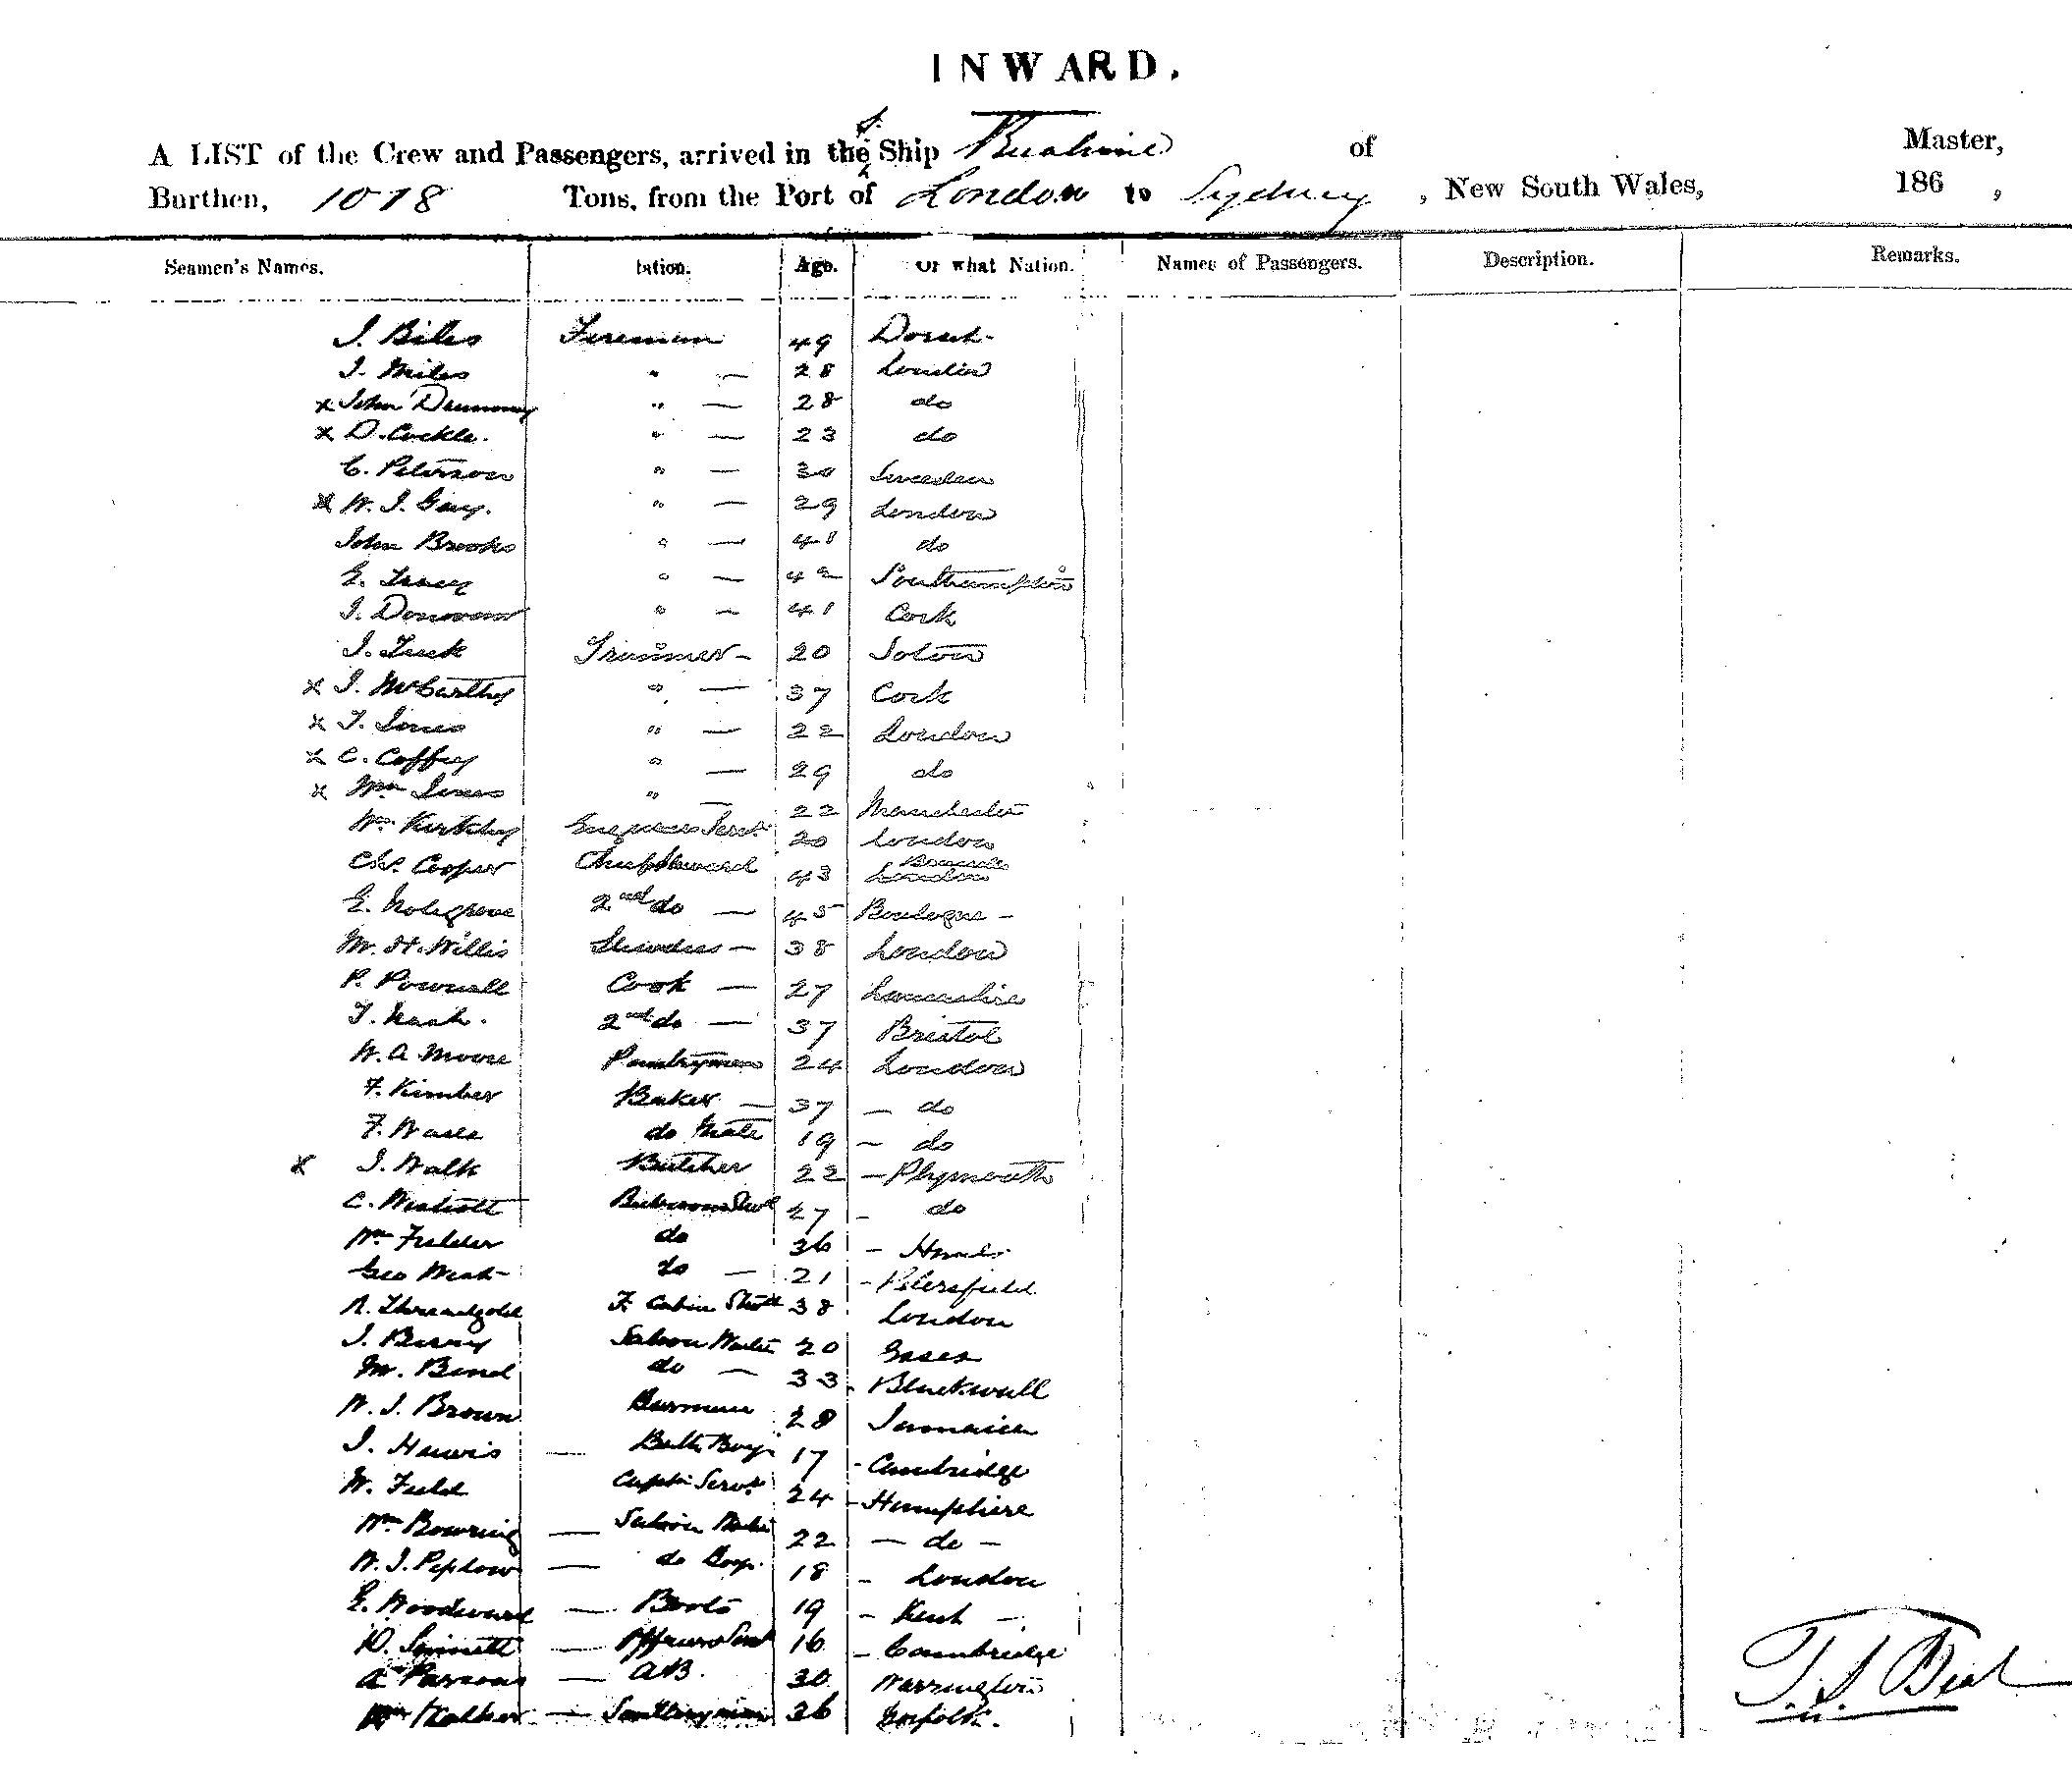 INWARD.
A LIST of the Crew and Passengers, arrived in the S. Ship Ruahine of Master,
Burthen, 1078 Tons, from the Port of London to Sydney, New South Wales, 186 ,
Seamen's Names. tation. Age. Of what Nation. Names of Passengers. Description. Remarks.
J. Biles Fireman 49 Dorset
J. Miles " — 28 London
x John " — 28 do
x D. Cockle. " — 23 do
C. Peterson " — 30 Sweden
x W. J. Gay. " — 29 London
John Brooks " — 41 do
E. Tracy " — 42 Southampton
J. Donovan " — 41 Cork
J. Tuck Trimmer — 20 Soton
x J. McCarthy " — 37 Cork
x T. Jones " — 22 London
x C. Coffey " — 29 do
x Wm Jones " — 22 Manchester
Wm Engineers Servt 20 London
Chs. Cooper Chief Steward 43 London
E. 2nd do — 45 Boulogne —
M. H. Willis Stewdess — 38 London
P. Pownall Cook — 27 Lancashire
T. Nash. 2nd do — 37 Bristol
W. A. Moore Pantryman 24 London
F. Kimber Baker — 37 — do
F. do Mate 19 — do
x J. Walk Butcher 22 — Plymouth
C. Westcott Bedroom Stwd 27 — do
Wm Fielder do 36 — Hants
Geo West do — 21 — Petersfield
A. Threadgold F. Cabin Stwd 38 London
J. Berry Saloon Waiter 20 Essex
M. Bend do — 33 - Blackwall
W. J. Brown Barman 28 Jamaica
J. Harris — Bath Boy 17 - Cambridge
W. Field Capts Servt 24 — Hampshire
Wm Bowring — Saloon Waiter 22 — do —
W. J. Peplow — do Boy. 18 — London
E. Woodward — Boots 19 — Kent —
D. Sinnett — Officers Servt 16 — Cambridge
A. Parsons — AB. 30 Warrington
Wm Walker — 36 Norfolk.
T. S. Beal